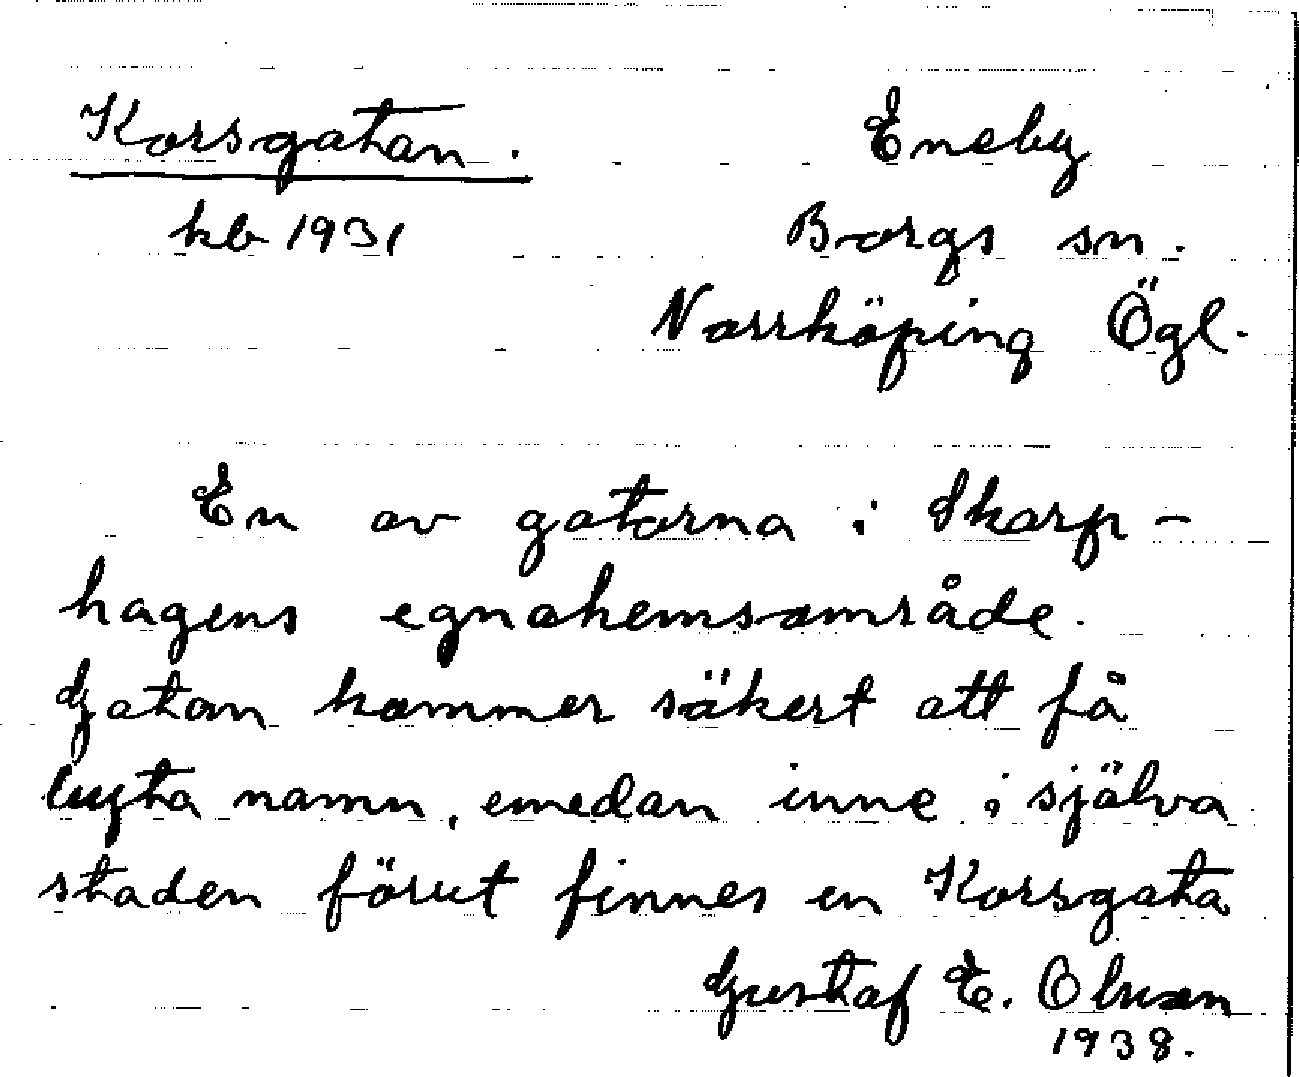 Korsgatan. Eneby
kb 1931 Borgs sn.
Norrköping Ögl.
En av gatorna i Skarp-
hagens egnahemsområde.
Gatan kommer säkert att få
byta namn, emedan inne i själva
staden förut finnes en Korsgata
Gustaf E. Olsson
1938.